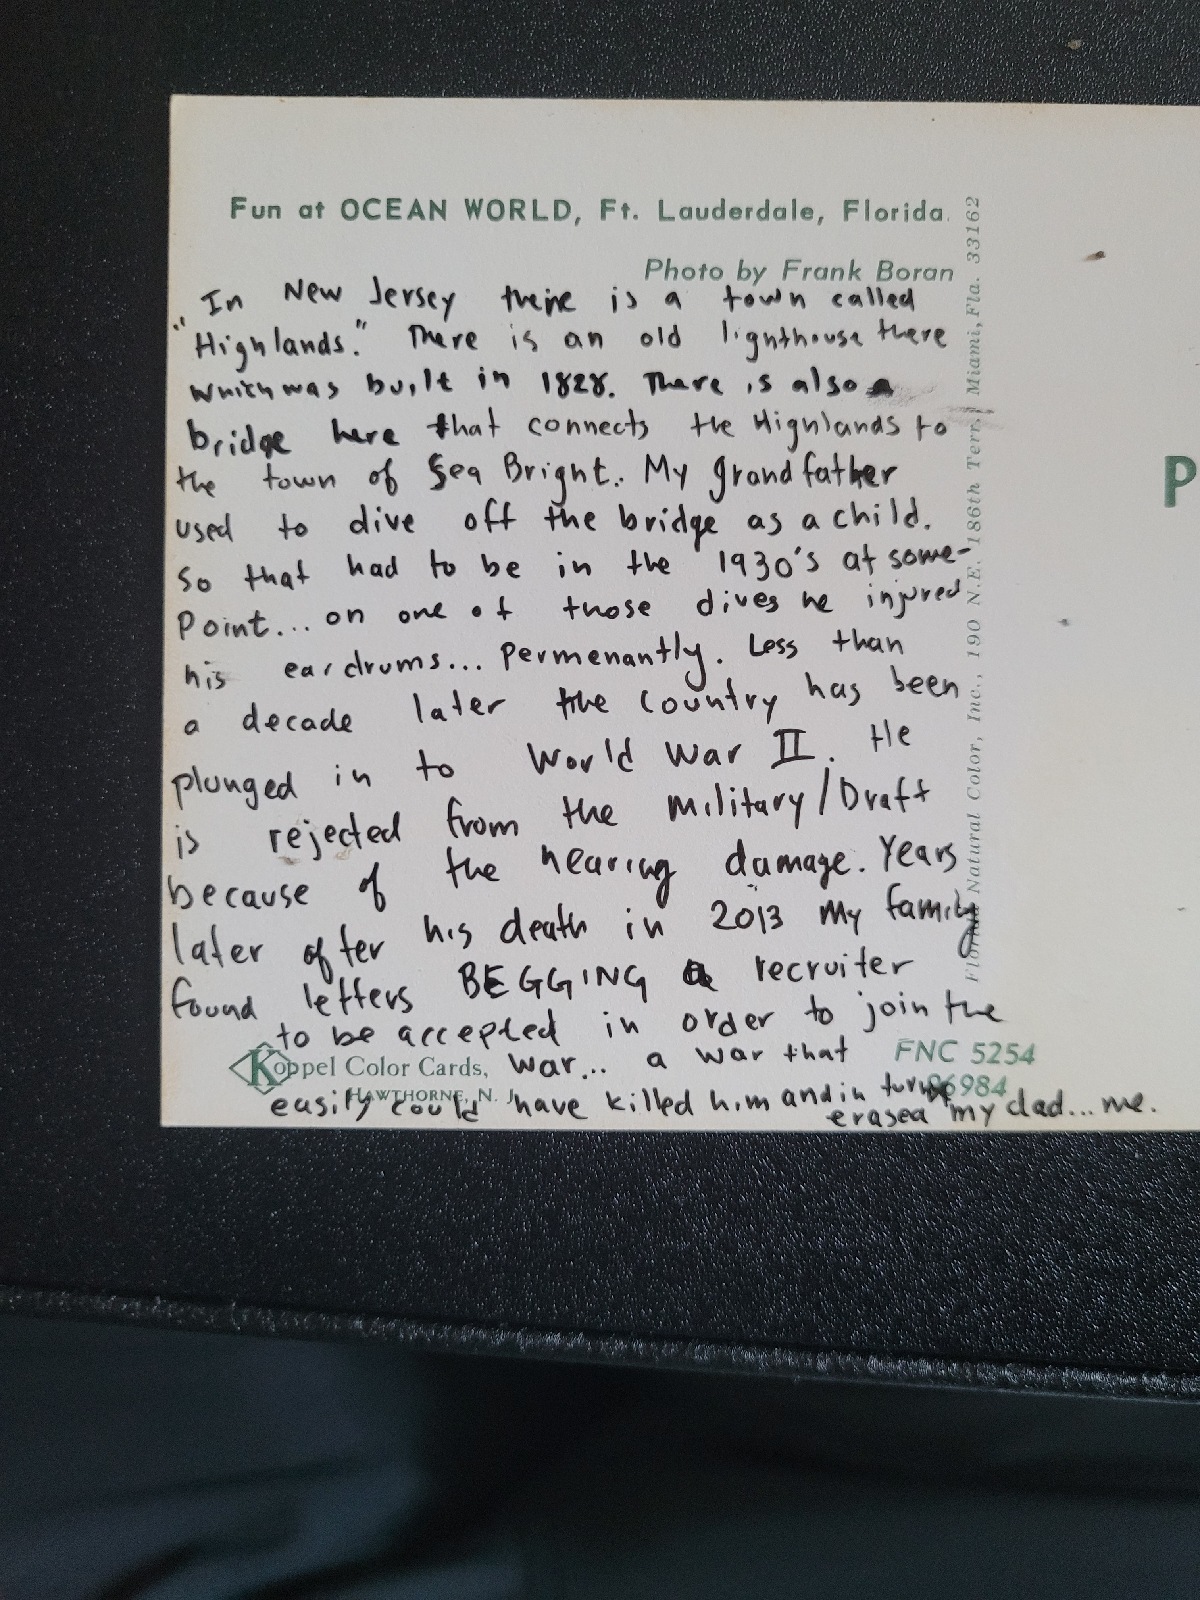 Fun at OCEAN WORLD, Ft. Lauderdale, Florida.
Photo by Frank Boran
In New Jersey there is a town called
"Highlands." There is an old lighthouse there
which was built in 1828. There is also a
bridge here that connects the Highlands to
the town of Sea Bright. My grandfather
used to dive off the bridge as a child.
So that had to be in the 1930's at some-
point... on one of those dives he injured
his eardrums... permenantly. Less than
a decade later the country has been
plunged in to World War II. He
is rejected from the military/Draft
because of the hearing damage. Years
later after his death in 2013 my family
found letters BEGGING a recruiter
to be accepted in order to join the
war... a war that
easily could have killed him and in turn
erased my dad... me.
Koppel Color Cards,
HAWTHORNE, N. J.
FNC 5254
96984
Florida Natural Color, Inc., 190 N.E. 186th Terr., Miami, Fla. 33162
P